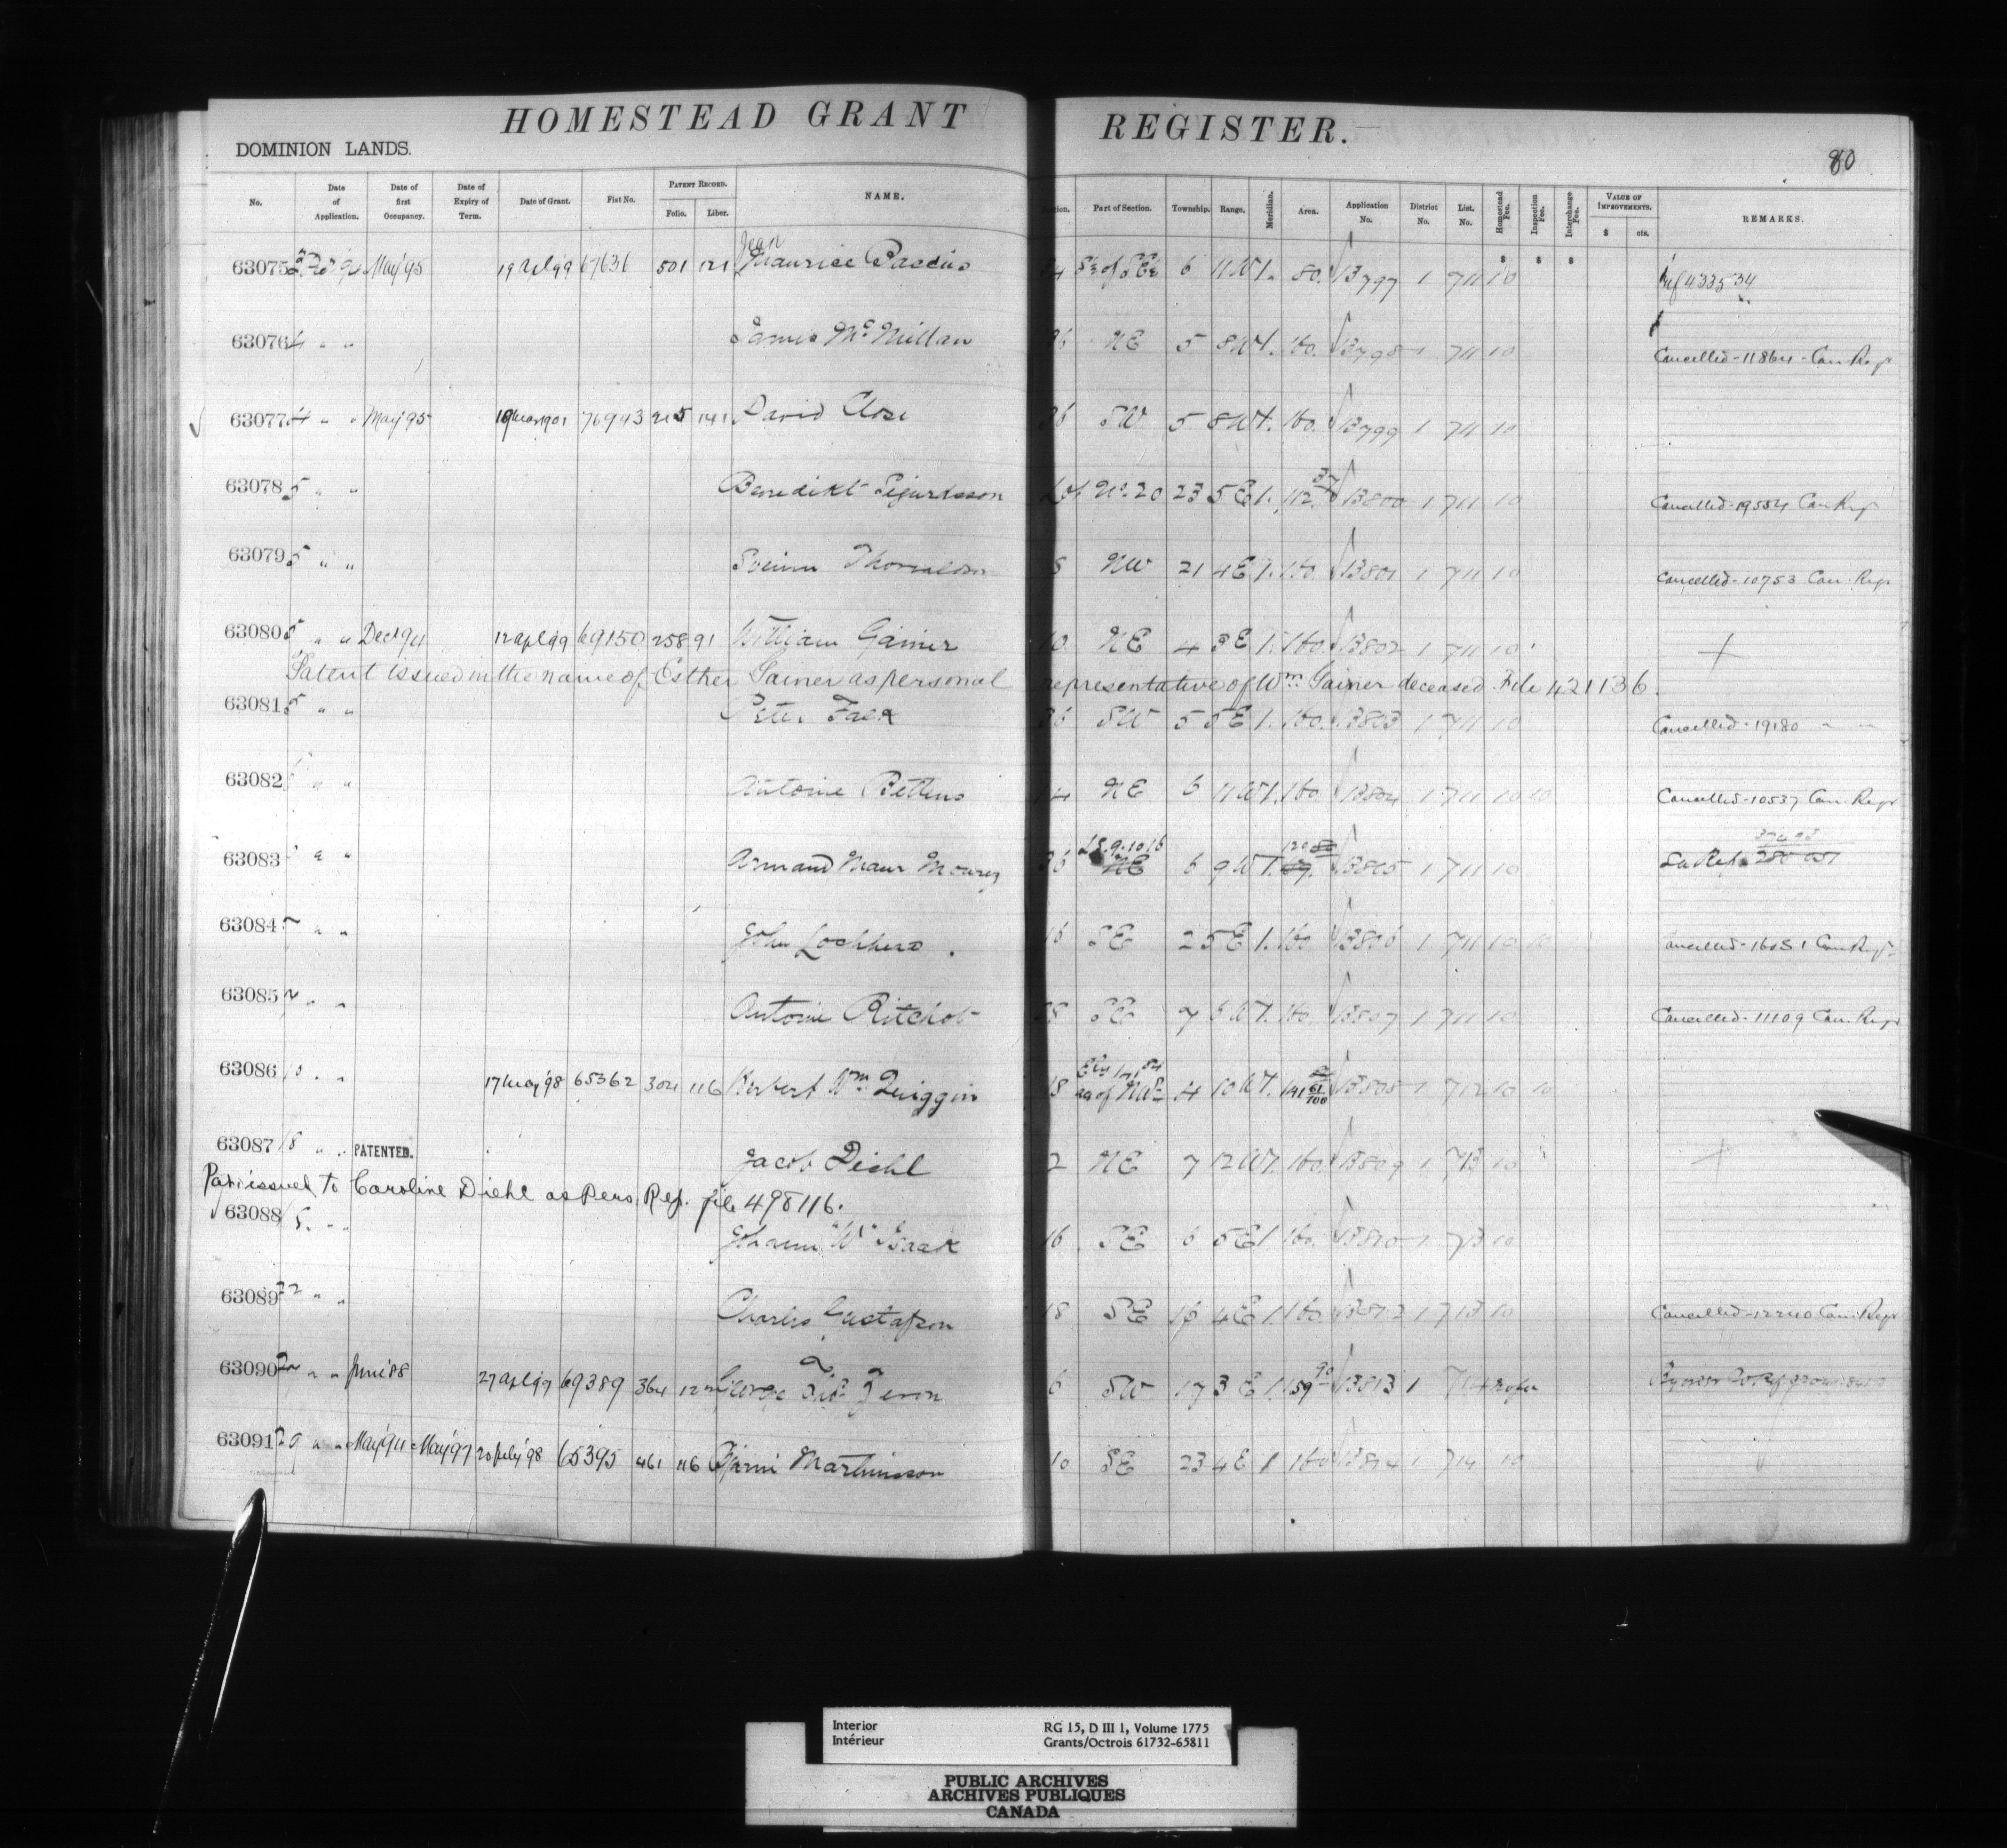 HOMESTEAD GRANT REGISTER.
DOMINION LANDS.
80
No. Date of Application. Date of first Occupancy. Date of Expiry of Term. Date of Grant. Fiat No. PATENT RECORD. Folio. Liber. NAME. Part of Section. Township. Range. Meridian. Area. Application No. District No. List. No. Homestead Fee. Inspection Fee. Interchange Fee. VALUE OF IMPROVEMENTS. $ cts. REMARKS.
63075 May '95 19 Apl 99 67636 501 121 Jean Maurice 6 11 W 1. 80. 13797 1 711 10 Ref 433534
63076 4 " " James McMillan 36 NE 5 8 W 1. 160. 13798 1 711 10 Cancelled - 11864 - Can. Regr
63077 4 " " May '95 1901 76943 215 141 David Close 36 SW 5 8 W 1. 160. 13799 1 711 10
63078 5 " " Benedikt Sigurdsson Lot No. 20 23 5 E 1. 112. 13800 1 711 10 Cancelled - 19554 Can. Regr
63079 5 " " Sveinn Thorvaldson NW 21 4 E 1. 160. 13801 1 711 10 Cancelled - 10753 Can. Regr
63080 5 " " Dec 94 12 Apl 99 69150 258 91 William Gainer 10 NE 4 3 E 1. 160. 13802 1 711 10
Patent issued in the name of Esther Gainer as personal representative of Wm. Gainer deceased File 421136.
63081 5 " " Peter Falk 36 SW 5 5 E 1. 160. 13803 1 711 10 Cancelled - 19180 " "
63082 " " Antoine Bettens 14 NE 6 11 W 1. 160. 13804 1 711 10 10 Cancelled - 10537 Can. Regr
63083 " " Armand Maur 36 LS. 9.10.16 NE 6 9 W 1. 120 13805 1 711 10 See Ref.
63084 " " John Lochhead 16 SE 2 5 E 1. 160. 13806 1 711 10 10 Cancelled - 16081 Can. Regr
63085 " " Antoine Ritchot SE 7 6 W 1. 160. 13807 1 711 10 Cancelled - 11109 Can. Regr
63086 " " 17 May '98 65362 304 116 Herbert Wm. Quiggin 18 4 10 W 1. 141 61/100 13808 1 712 10 10
63087 18 " " PATENTED. Jacob Diehl 2 NE 7 12 W 1. 160. 13809 1 713 10
Pat. issued to Caroline Diehl as Pers. Rep. file 498116.
63088 " " Johann "W" Isaak 16 SE 6 5 E 1 160. 13810 1 713 10
63089 22 " " Charles Gustafson 18 SE 16 4 E 1 160. 13812 1 713 10 Cancelled - 12240 Can. Regr
63090 " " June '88 27 Apl 99 69389 364 George 6 SW 17 3 E 1. 159 90 13813 1 714
63091 29 " " May '94 May '97 20 July '98 65395 461 116 Bjarni Martinsson 10 SE 23 4 E 1 160 13814 1 714 10
Interior
Intérieur
RG 15, D III 1, Volume 1775
Grants/Octrois 61732-65811
PUBLIC ARCHIVES
ARCHIVES PUBLIQUES
CANADA